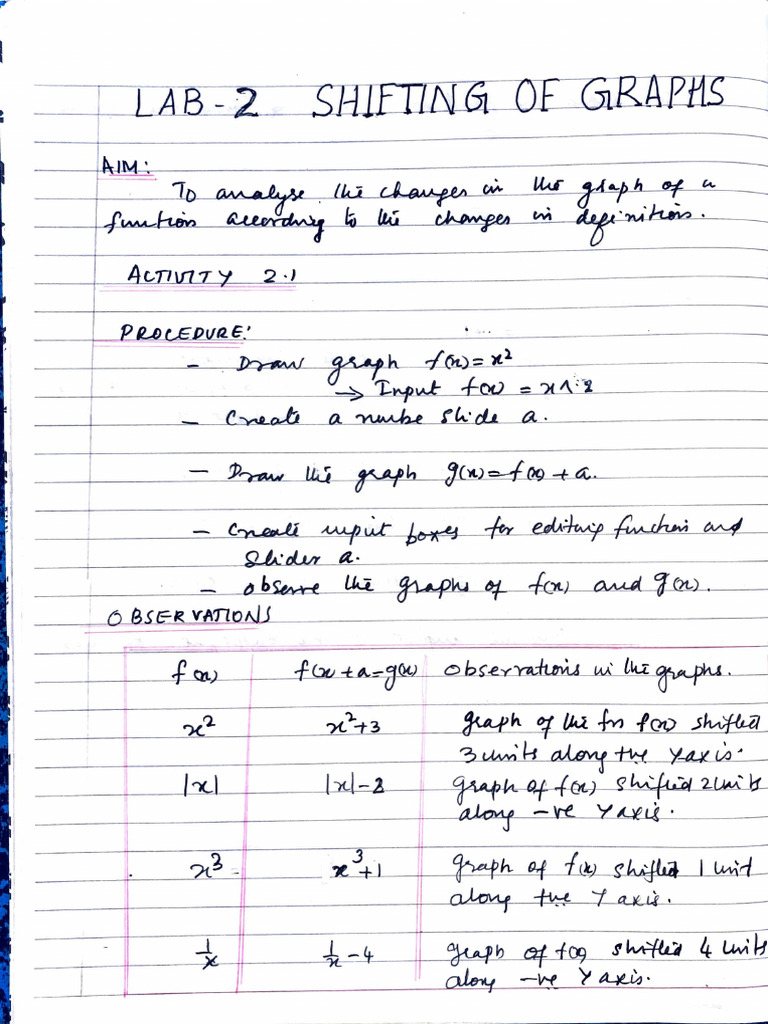 LAB-2 SHIFTING OF GRAPHS
AIM:
To analyse the changes in the graph of a
function according to the changes in definition.
ACTIVITY 2.1
PROCEDURE:
- Draw graph f(x)=x²
→ Input f(x) = x^2
- Create a numbe slide a.
- Draw the graph g(x)=f(x)+a.
- Create input boxes for editing function and
slider a.
- Observe the graphs of f(x) and g(x).
OBSERVATIONS
f(x) f(x)+a=g(x) Observations in the graphs.
x² x²+3 graph of the fn f(x) shifted
3 units along the Y axis.
|x| |x|-2 graph of f(x) shifted 2 units
along -ve Y axis.
x³ x³+1 graph of f(x) shifted 1 unit
along the Y axis.
1/x 1/x-4 graph of f(x) shifted 4 units
along -ve Y axis.